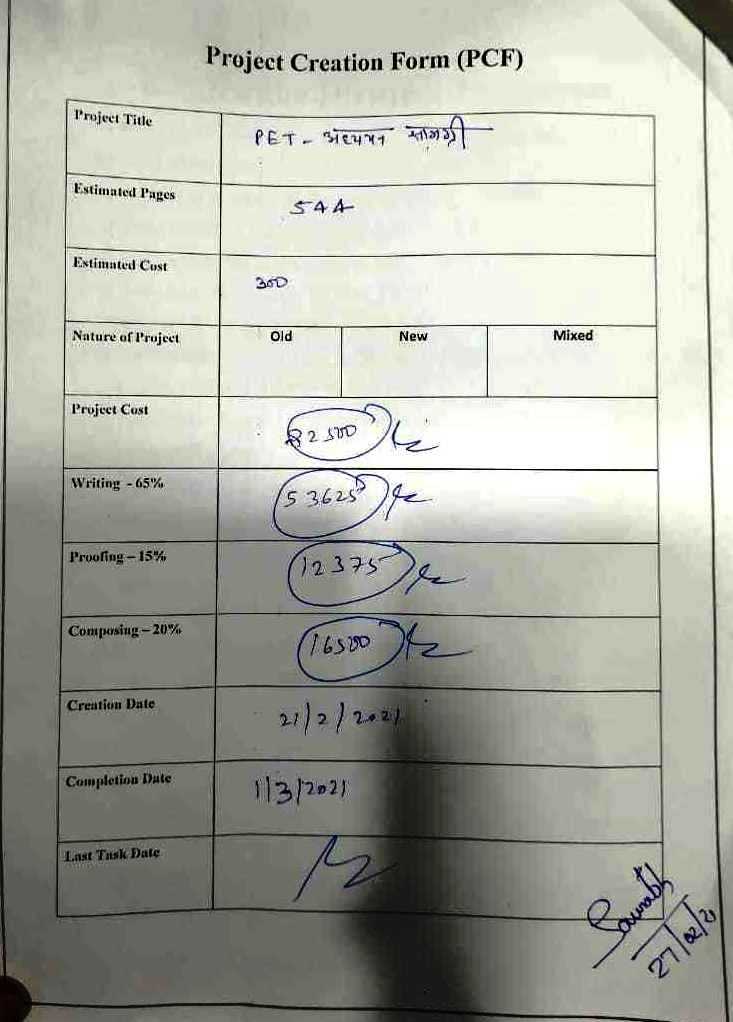 Project Creation Form (PCF)
Project Title
PET - अध्ययन सामग्री
Estimated Pages
544
Estimated Cost
300
Nature of Project
Old New Mixed
Project Cost
82500
Writing - 65%
53625
Proofing – 15%
12375
Composing – 20%
16500
Creation Date
21/2/2021
Completion Date
1/3/2021
Last Task Date
Saurabh
27/02/21